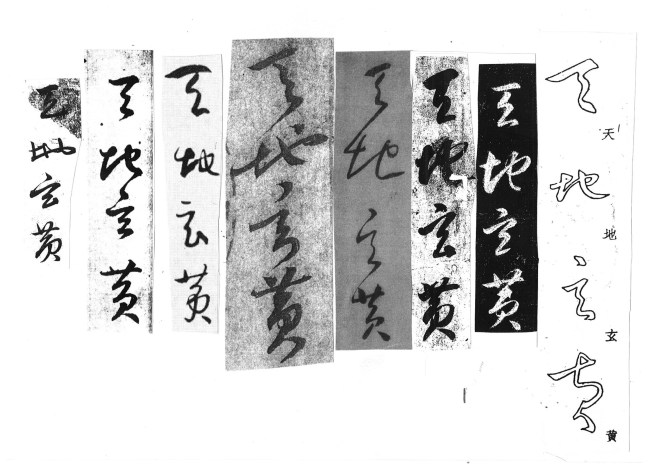 天地玄黄
天
地
玄
黄
天地玄黄
天地玄黄
天地玄黄
天地玄黄
天地玄黄
天地玄黄
天地玄黄